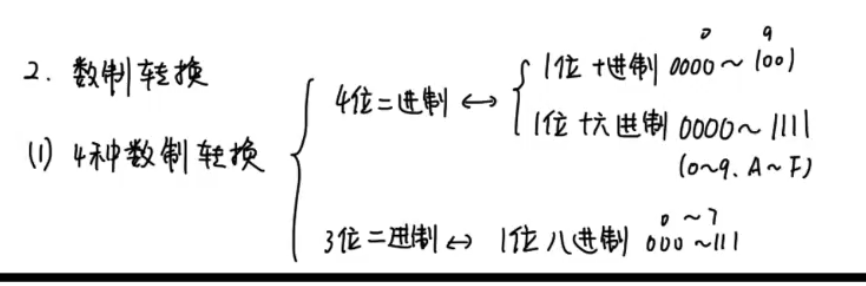 2. 数制转换
(1) 4种数制转换
4位二进制 ↔
0 9
1位十进制 0000～1001
1位十六进制 0000～1111
(0～9、A～F)
3位二进制 ↔ 1位八进制
0～7
000～111